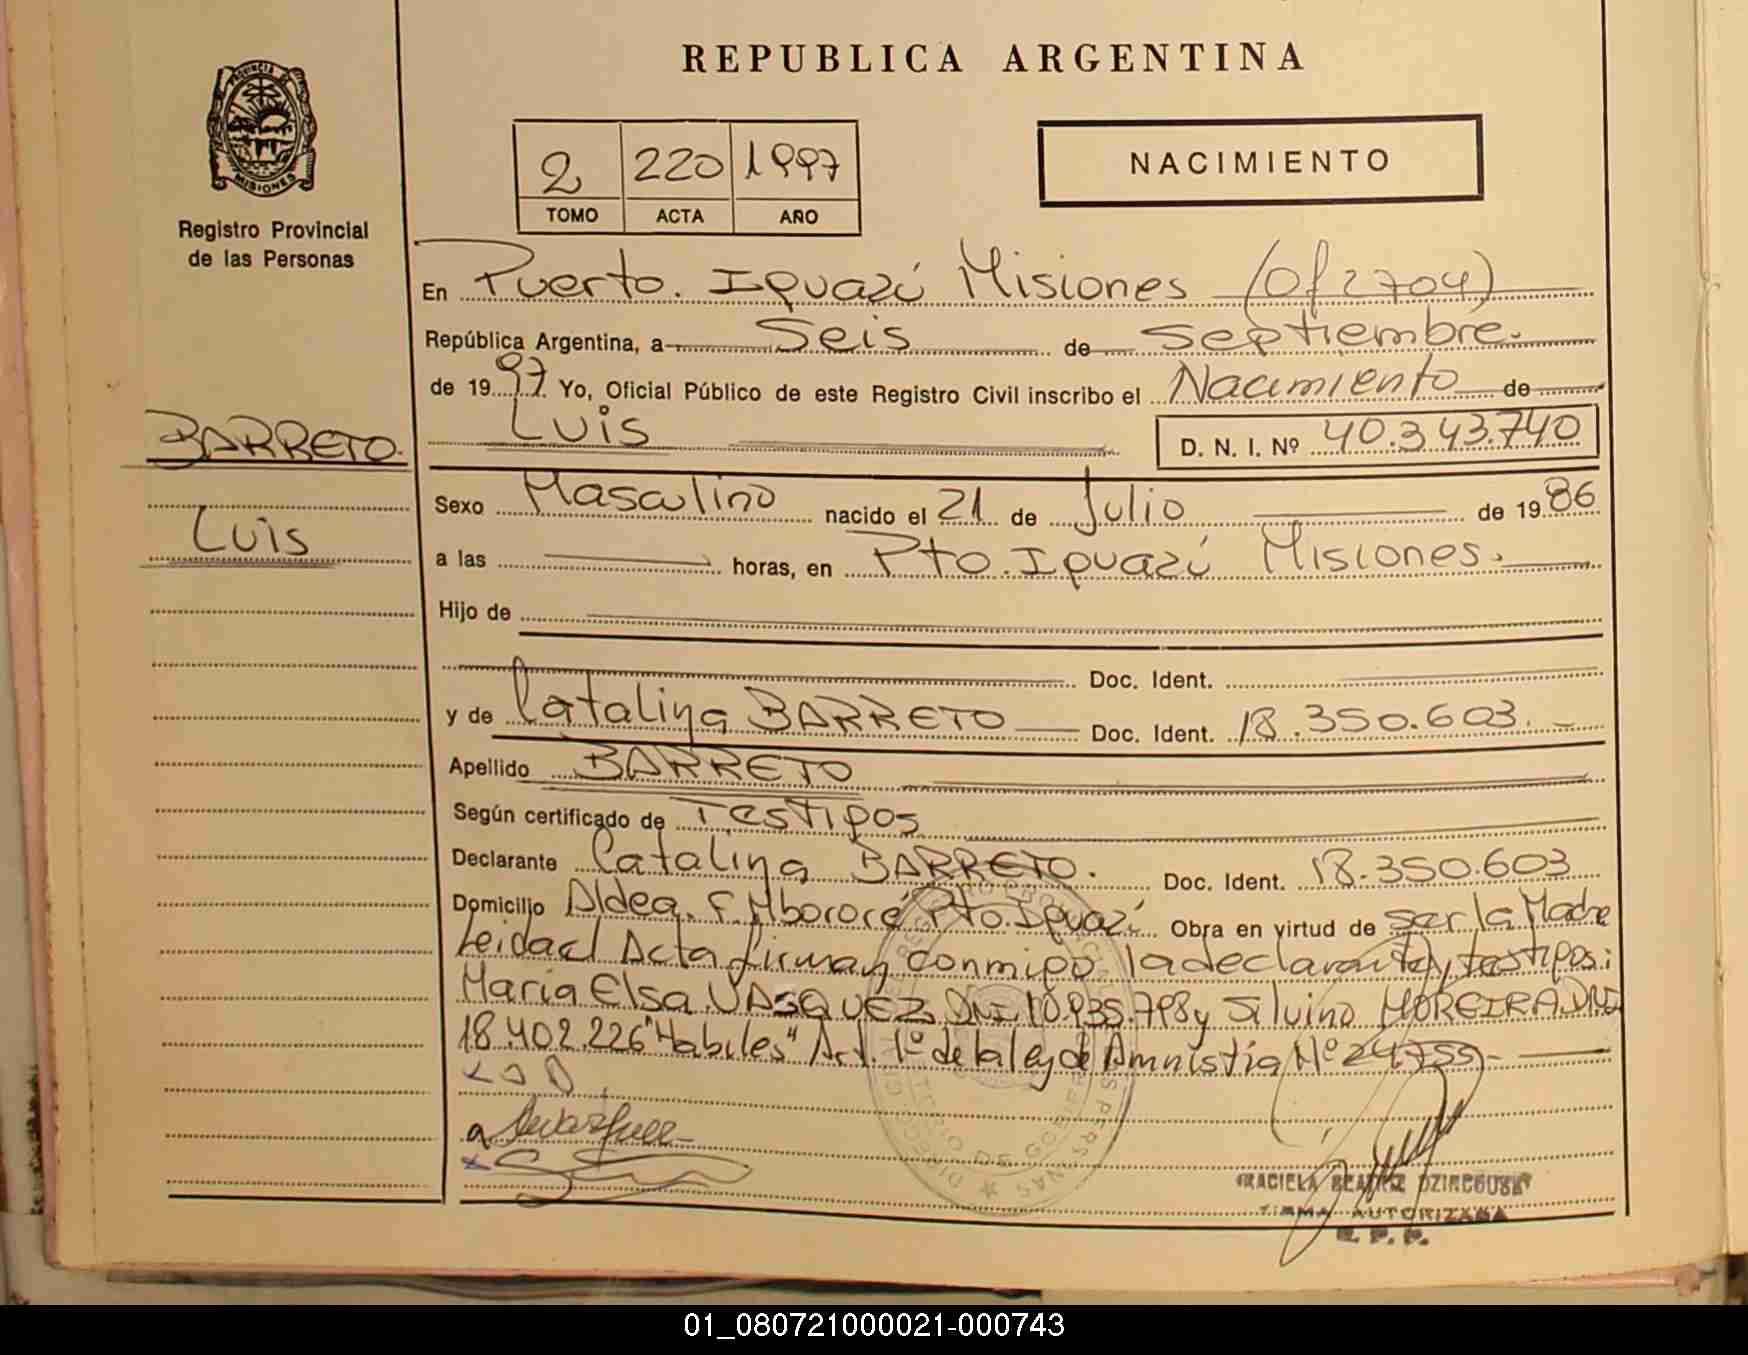 REPUBLICA ARGENTINA
PROVINCIA DE
MISIONES
Registro Provincial
de las Personas
2 220 1997
TOMO ACTA AÑO
NACIMIENTO
En Puerto. Iguazú Misiones (Of 2704)
República Argentina, a Seis de Septiembre.
de 19 97 Yo, Oficial Público de este Registro Civil inscribo el Nacimiento de
Luis D. N. I. Nº 40.343.740
BARRETO.
Luis
Sexo Masculino nacido el 21 de Julio de 19 86
a las horas, en Pto. Iguazú Misiones.
Hijo de
Doc. Ident.
y de Catalina BARRETO Doc. Ident. 18.350.603.
Apellido BARRETO
Según certificado de Testigos
Declarante Catalina BARRETO. Doc. Ident. 18.350.603
Domicilio Aldea. F. Mbororé Pto. Iguazú Obra en virtud de ser la Madre
Leida el Acta firman conmigo la declarante y testigos:
Maria Elsa VASQUEZ DNI 10.935.798 y Silvino MOREIRA DNI
18.402.226 "Habiles" Art. 1º de la ley de Amnistía Nº 24755
GRACIELA BEATRIZ
FIRMA AUTORIZADA
R. P. P.
01_080721000021-000743